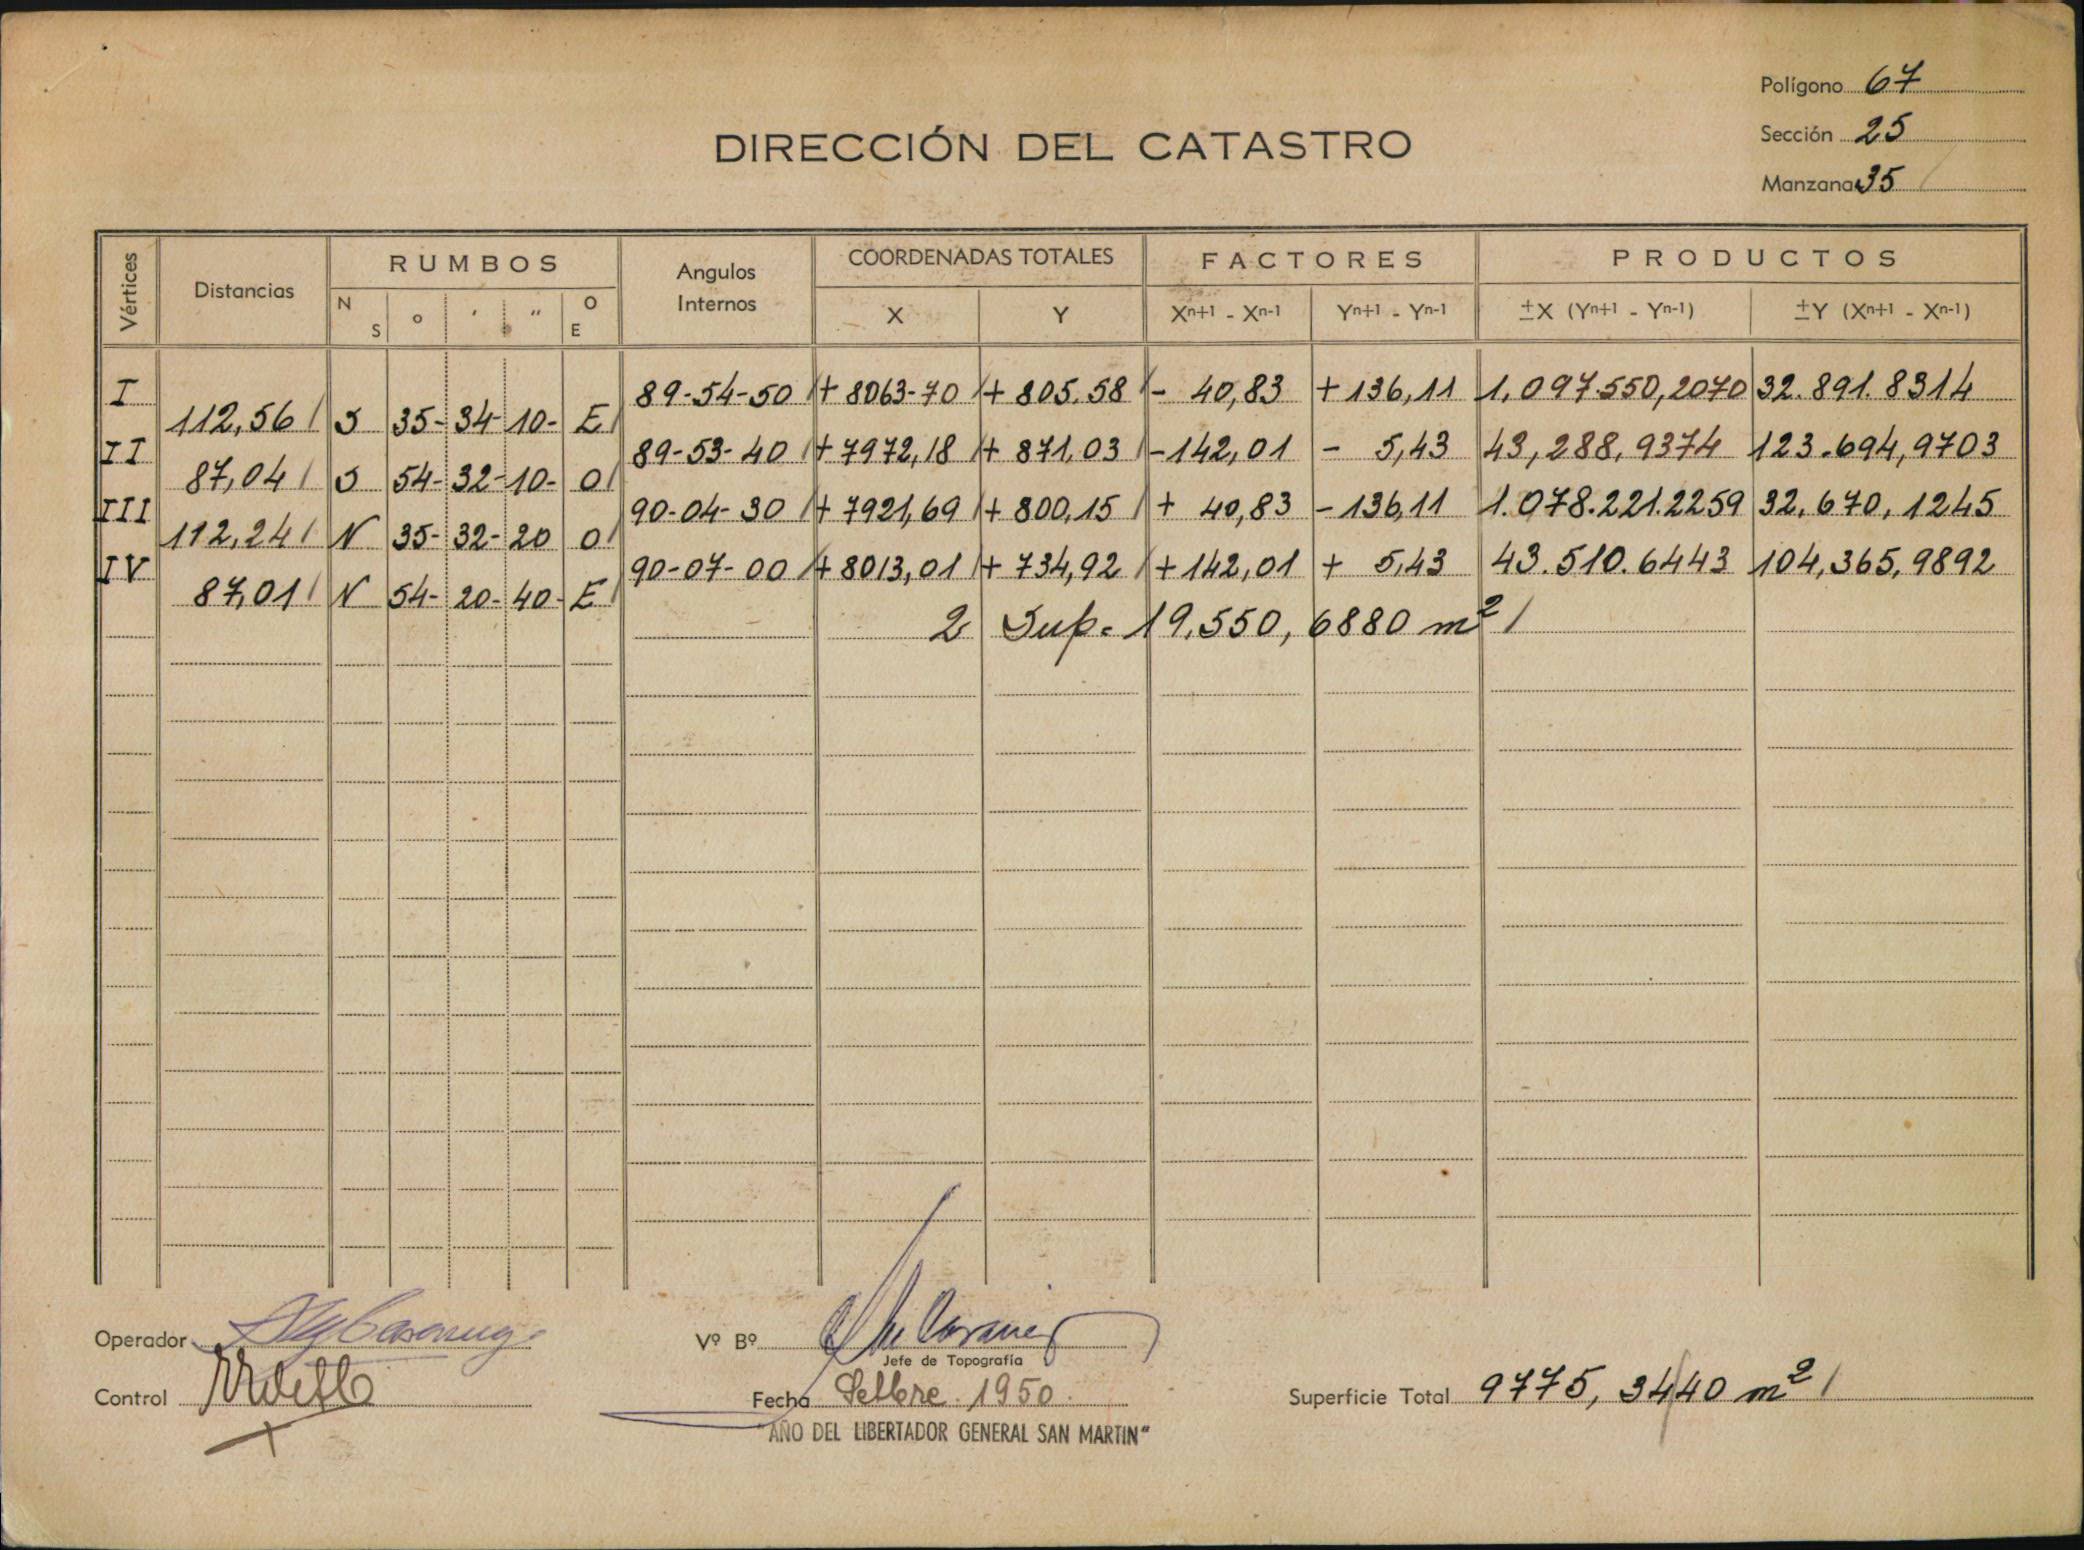 Polígono 67
Sección 25
Manzana 35
DIRECCIÓN DEL CATASTRO
Vértices Distancias RUMBOS Angulos Internos COORDENADAS TOTALES FACTORES PRODUCTOS
N S o ' " O E X Y Xn+1 - Xn-1 Yn+1 - Yn-1 ±X (Yn+1 - Yn-1) ±Y (Xn+1 - Xn-1)
I 89-54-50 + 8063-70 + 805.58 - 40,83 + 136,11 1.097.550,2070 32.891.8314
112,56 S 35- 34- 10- E
II 89-53-40 + 7972,18 + 871,03 -142,01 - 5,43 43,288,9374 123.694,9703
87,04 S 54- 32- 10- O
III 90-04-30 + 7921,69 + 800,15 + 40,83 -136,11 1.078.221.2259 32,670,1245
112,24 N 35- 32- 20 O
IV 90-07-00 + 8013,01 + 734,92 + 142,01 + 5,43 43.510.6443 104,365,9892
87,01 N 54- 20- 40- E
2 Sup. 19,550,6880 m²
Operador
Vº Bº
Jefe de Topografía
Control
Fecha Setbre. 1950.
"AÑO DEL LIBERTADOR GENERAL SAN MARTIN"
Superficie Total 9775,3440 m²